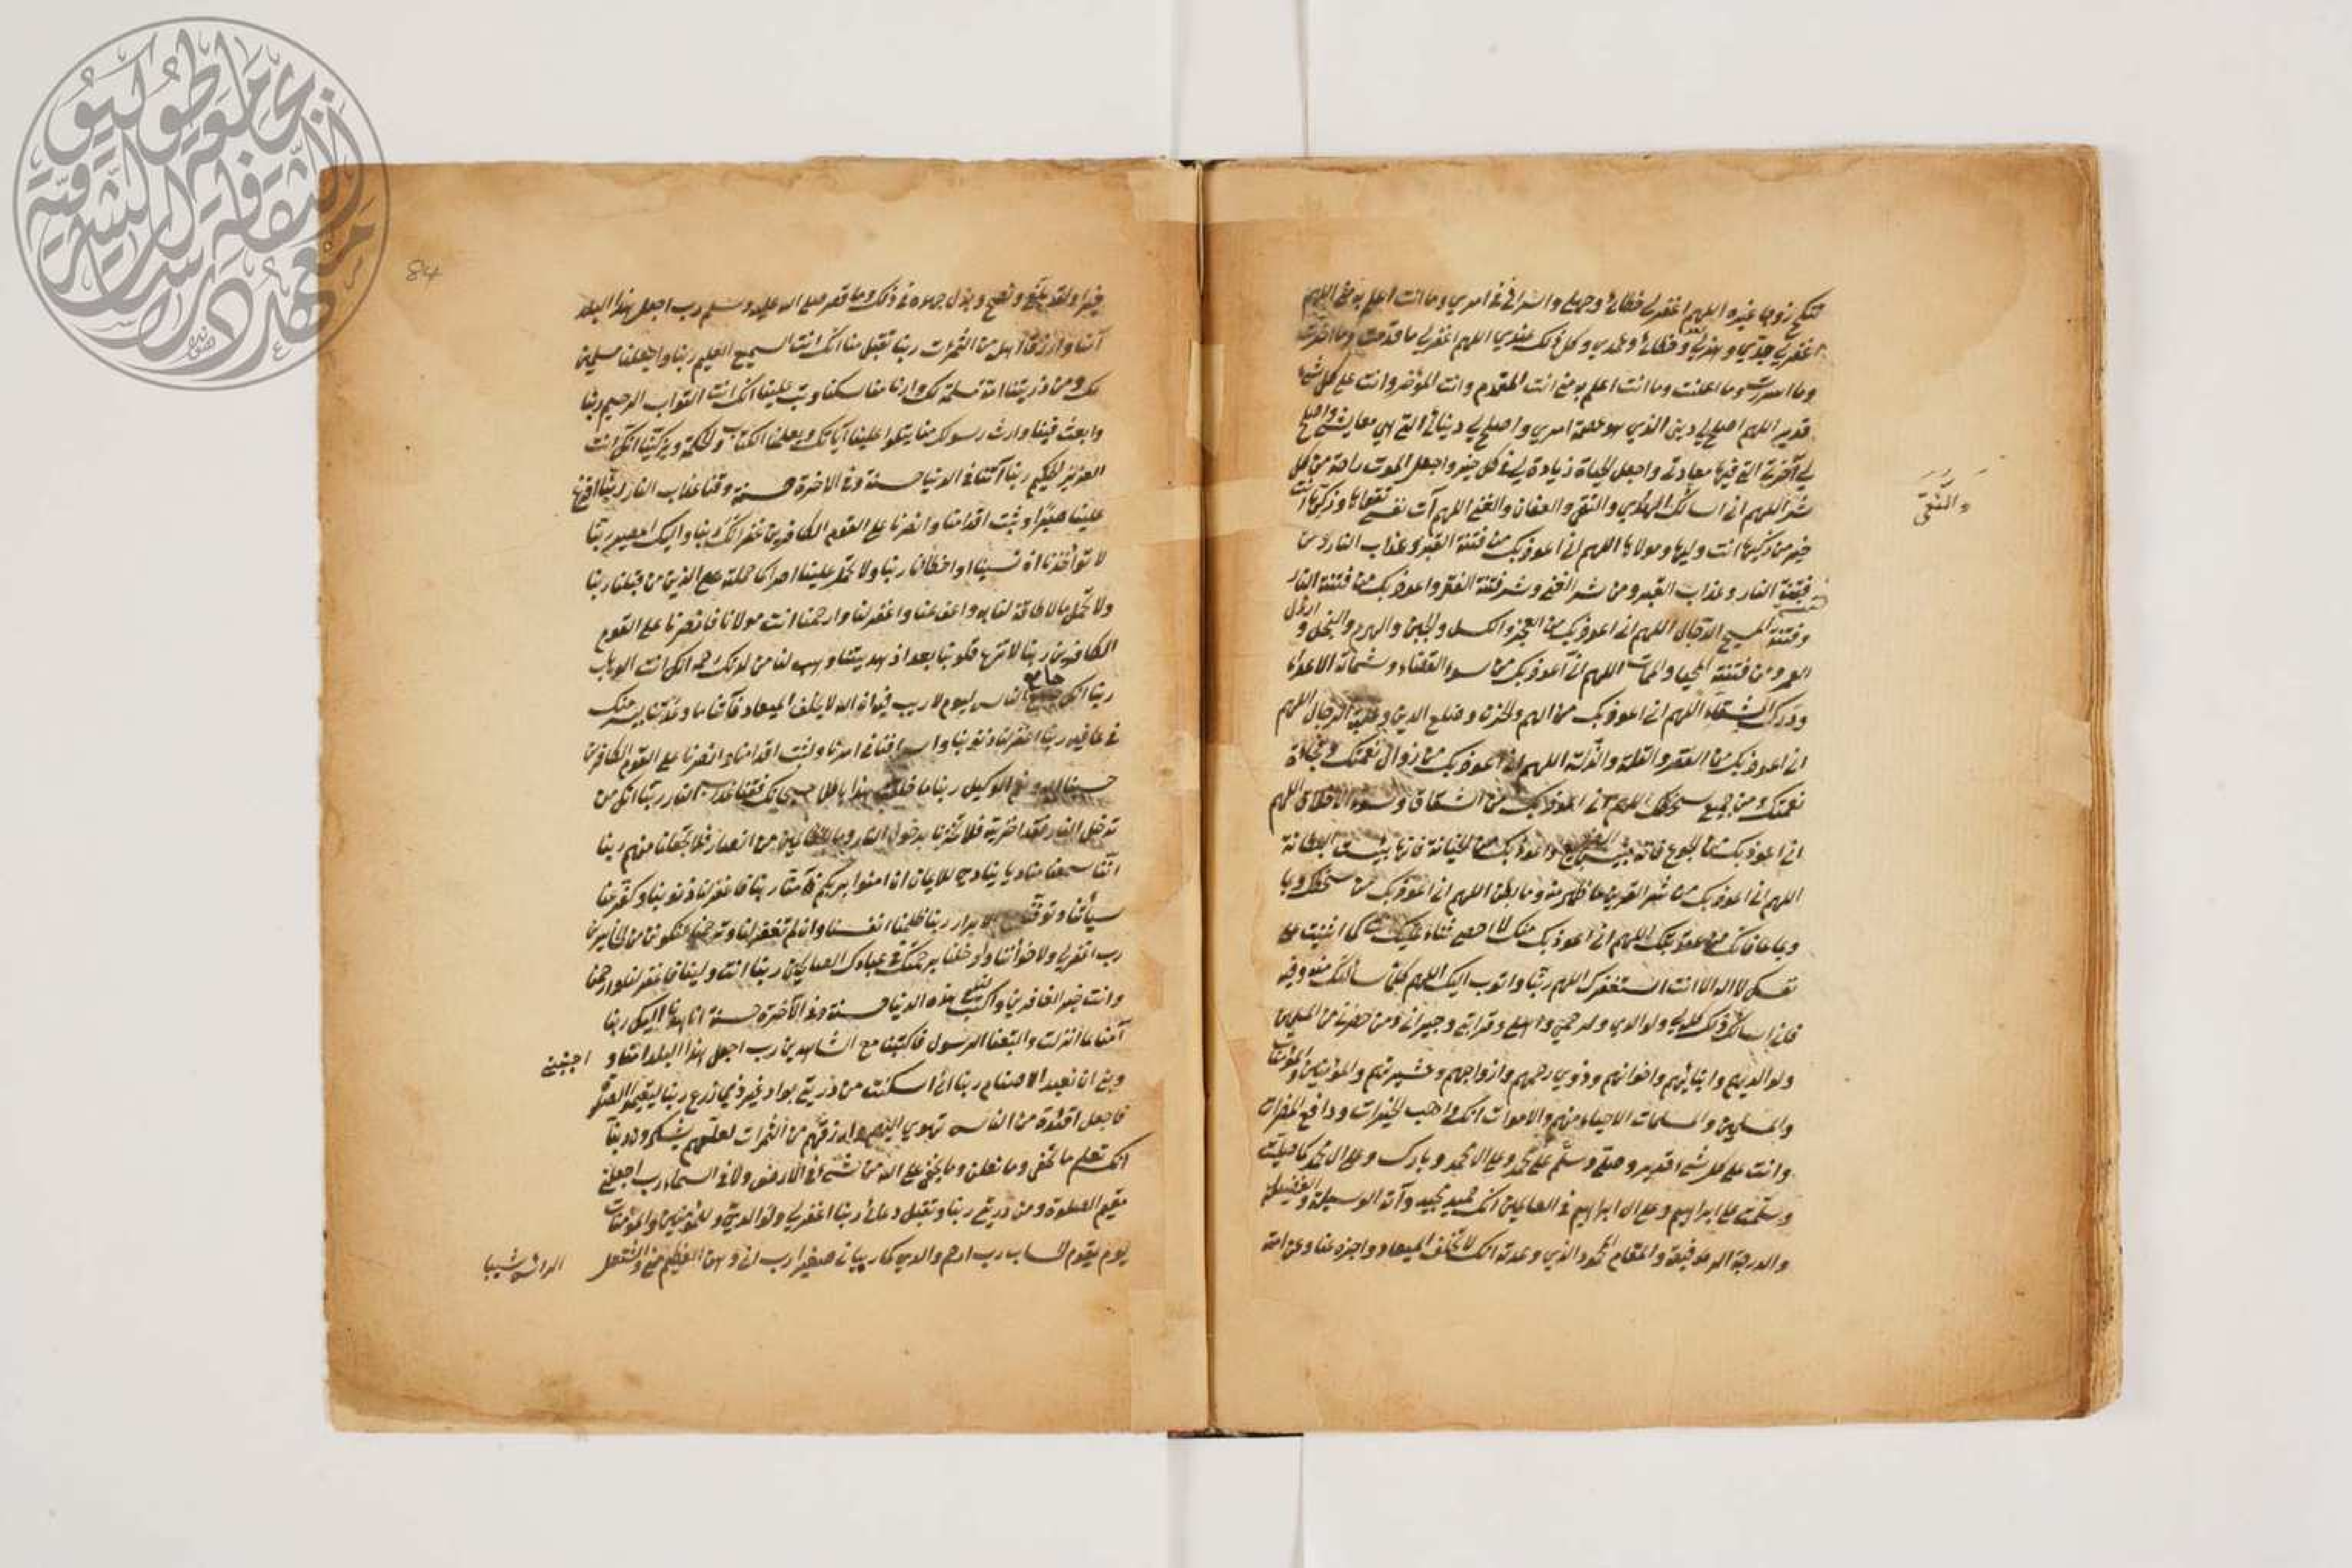 تنكح زوجا غيره اللهم اغفر لي خطائي وجهلي واسرافي في امري وما انت اعلم به مني اللهم
اغفر لي جدي وهزلي وخطائي وعمدي وكل ذلك عندي اللهم اغفر لي ما قدمت وما اخرت
وما اسررت وما اعلنت وما انت اعلم به مني انت المقدم وانت المؤخر وانت على كل شيء
قدير اللهم اصلح لي ديني الذي هو عصمة امري واصلح لي دنيائي التي فيها معايشي واصلح
لي آخرتي التي فيها معادي واجعل الحياة زيادة لي في كل خير واجعل الموت راحة من كل
شر اللهم اني اسالك الهدي والتقى والعفاف والغنى اللهم آت نفسي تقواها وزكها انت
والتقى
خير من زكيها انت وليها ومولاها اللهم اني اعوذ بك من فتنة القبر وعذاب النار ومن
فتنة النار وعذاب القبر ومن شر الغنى وشر فتنة الفقر واعوذ بك من فتنة النار
وفتنة المسيح الدجال اللهم اني اعوذ بك من العجز والكسل والجبن والهرم والبخل و
العمر ومن فتنة المحيا والممات اللهم اني اعوذ بك من سوء القضاء وشماتة الاعداء
ودرك الشقاء اللهم اني اعوذ بك من الهم والحزن وضلع الدين وغلبة الرجال اللهم
اني اعوذ بك من الفقر والقلة والذلة اللهم اني اعوذ بك من زوال نعمتك وفجاءة
نقمتك ومن جميع سخطك اللهم اني اعوذ بك من الشقاق وسوء الاخلاق اللهم
اني اعوذ بك من الجوع فانه بئس الضجيع واعوذ بك من الخيانة فانها بئست البطانة
اللهم اني اعوذ بك من شر الفتن ما ظهر منه وما بطن اللهم اني اعوذ بك من سخطك وبا
وبمعافاتك من عقوبتك اللهم اني اعوذ بك منك لا احصي ثناء عليك كما اثنيت على
نفسك لا اله الا انت استغفرك اللهم ربنا واتوب اليك اللهم كلما سالتك منه وفيه
فاني اسالك ذلك كله لي ولوالدي ولرحمي واهلي وقرابتي وجيراني ومن حضرني من المسلمين
ولوالديهم وابنائهم واخوانهم وذوي رحمهم وازواجهم وعشيرتهم والمؤمنين والمؤمنات
والمسلمين والمسلمات الاحياء منهم والاموات انك واهب الخيرات ودافع المضرات
وانت على كل شيء قدير وصل وسلم على محمد وعلى ال محمد وبارك وعلى ال محمد كما صليت
وسلمت على ابراهيم وعلى ال ابراهيم في العالمين انك حميد مجيد وآته الوسيلة والفضيلة
والدرجة الرفيعة والمقام المحمود الذي وعدته انك لا تخلف الميعاد واجزه عنا وعن امته
84
خيرا ولقد بلغ ونصح وبذل جهده في ذلك وما قصر صلى الله عليه وسلم رب اجعل هذا البلد
آمنا وارزق اهله من الثمرات ربنا تقبل منا انك انت السميع العليم ربنا واجعلنا مسلمين
لك ومن ذريتنا امة مسلمة لك وارنا مناسكنا وتب علينا انك انت التواب الرحيم ربنا
وابعث فينا وارث رسولك منا يتلوا علينا آياتك ويعلمنا الكتاب والحكمة ويزكينا انك انت
العزيز الحكيم ربنا آتنا في الدنيا حسنة وفي الاخرة حسنة وقنا عذاب النار ربنا افرغ
علينا صبرا وثبت اقدامنا وانصرنا على القوم الكافرين غفرانك ربنا واليك المصير ربنا
لا تؤاخذنا ان نسينا او اخطانا ربنا ولا تحمل علينا اصرا كما حملته على الذين من قبلنا ربنا
ولا تحملنا ما لا طاقة لنا به واعف عنا واغفر لنا وارحمنا انت مولانا فانصرنا على القوم
الكافرين ربنا لا تزغ قلوبنا بعد اذ هديتنا وهب لنا من لدنك رحمة انك انت الوهاب
ربنا انك جامع الناس ليوم لا ريب فيه ان الله لا يخلف الميعاد فآتنا ما وعدتنا منك
في عافية ربنا اغفر لنا ذنوبنا واسرافنا في امرنا وثبت اقدامنا وانصرنا على القوم الكافرين
حسبنا الله ونعم الوكيل ربنا ما خلقت هذا باطلا سبحانك فقنا عذاب النار ربنا انك من
تدخل النار فقد اخزيته فلا تخزنا بدخول النار وما للظالمين من انصار فلا تجعلنا منهم ربنا
اننا سمعنا مناديا ينادي للايمان ان امنوا بربكم فآمنا ربنا فاغفر لنا ذنوبنا وكفر عنا
سيأتنا وتوفنا مع الابرار ربنا ظلمنا انفسنا وان لم تغفر لنا وترحمنا لنكونن من الخاسرين
رب اغفر لي ولاخواننا وادخلنا برحمتك في عبادك الصالحين ربنا انت ولينا فاغفر لنا وارحمنا
وانت خير الغافرين واكتب لنا في هذه الدنيا حسنة وفي الآخرة حسنة انا هدنا اليك ربنا
آمنا بما انزلت واتبعنا الرسول فاكتبنا مع الشاهدين رب اجعل هذا البلد آمنا و اجنبني
وبني ان نعبد الاصنام ربنا اني اسكنت من ذريتي بواد غير ذي زرع ربنا ليقيموا الصلوة
فاجعل افئدة من الناس تهوي اليهم وارزقهم من الثمرات لعلهم يشكرون ربنا
انك تعلم ما نخفي وما نعلن وما يخفى على الله من شيء في الارض ولا في السماء رب اجعلني
مقيم الصلوة ومن ذريتي ربنا وتقبل دعائي ربنا اغفر لي ولوالدي وللمؤمنين والمؤمنات
يوم يقوم الحساب رب ارحم والدي كما ربياني صغيرا رب اني وهن العظم مني واشتعل الراس شيبا